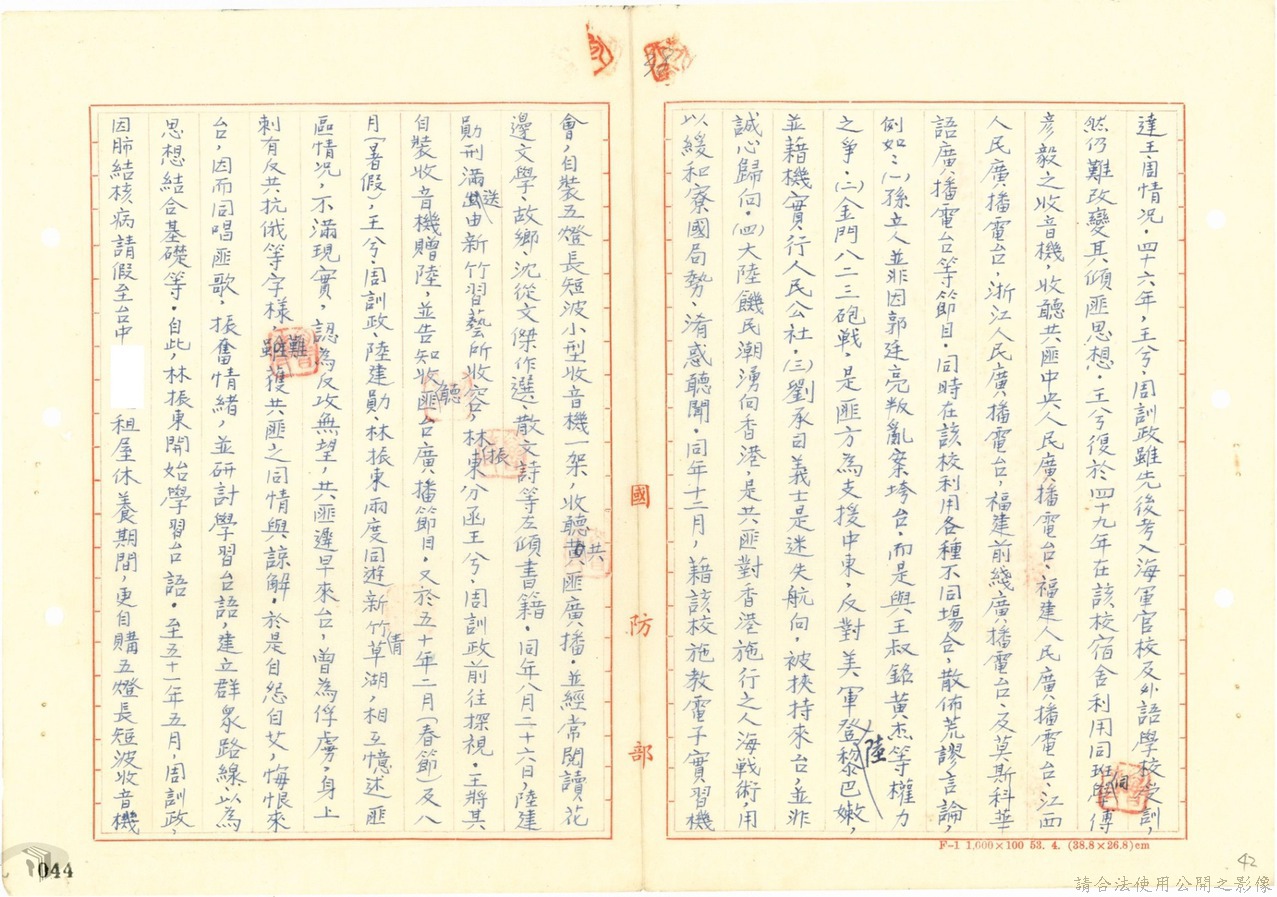 達王周情況。四十六年，王兮，周訓政雖先後考入海軍官校及外語學校受訓，
然仍難改變其傾匪思想。王兮復於四十九年在該校宿舍利用同班同學傅
彥毅之收音機，收聽共匪中央人民廣播電台、福建人民廣播電台、江西
人民廣播電台，浙江人民廣播電台，福建前綫廣播電台、及莫斯科華
語廣播電台等節目。同時在該校利用各種不同場合，散佈荒謬言論，
例如：(一)孫立人並非因郭廷亮叛亂案垮台。而是與王叔銘黃杰等權力
之爭。(二)金門八二三砲戰，是匪方為支援中東，反對美軍登陸黎巴嫩，
並藉機實行人民公社。(三)劉承司義士是迷失航向，被挾持來台，並非
誠心歸向。(四)大陸饑民潮湧向香港，是共匪對香港施行之人海戰術，用
以緩和寮國局勢、淆惑聽聞。同年十二月，藉該校施教電子實習機
會，自裝五燈長短波小型收音機一架，收聽共匪廣播。並經常閱讀花
邊文學、故鄉、沈從文傑作選、散文詩等左傾書籍。同年八月二十六日，陸建
勛刑滿送由新竹習藝所收容，林振東分函王兮、周訓政前往探視。王將其
自裝收音機贈陸，並告知收聽匪台廣播節目。又於五十年二月（春節）及八
月（暑假），王兮、周訓政、陸建勛、林振東兩度同遊新竹青草湖，相互憶述匪
區情況，不滿現實，認為反攻無望，共匪遲早來台，曾為俘虜，身上
刺有反共抗俄等字樣，難獲共匪之同情與諒解。於是自怨自艾，悔恨來
台，因而同唱匪歌，振奮情緒，並研討學習台語，建立群眾路線，以為
思想結合基礎等。自此，林振東開始學習台語。至五十一年五月，周訓政，
因肺結核病請假至台中 租屋休養期間，更自購五燈長短波收音機
國防部
F-1 1,600×100 53. 4. (38.8×26.8)cm
044
42
請合法使用公開之影像